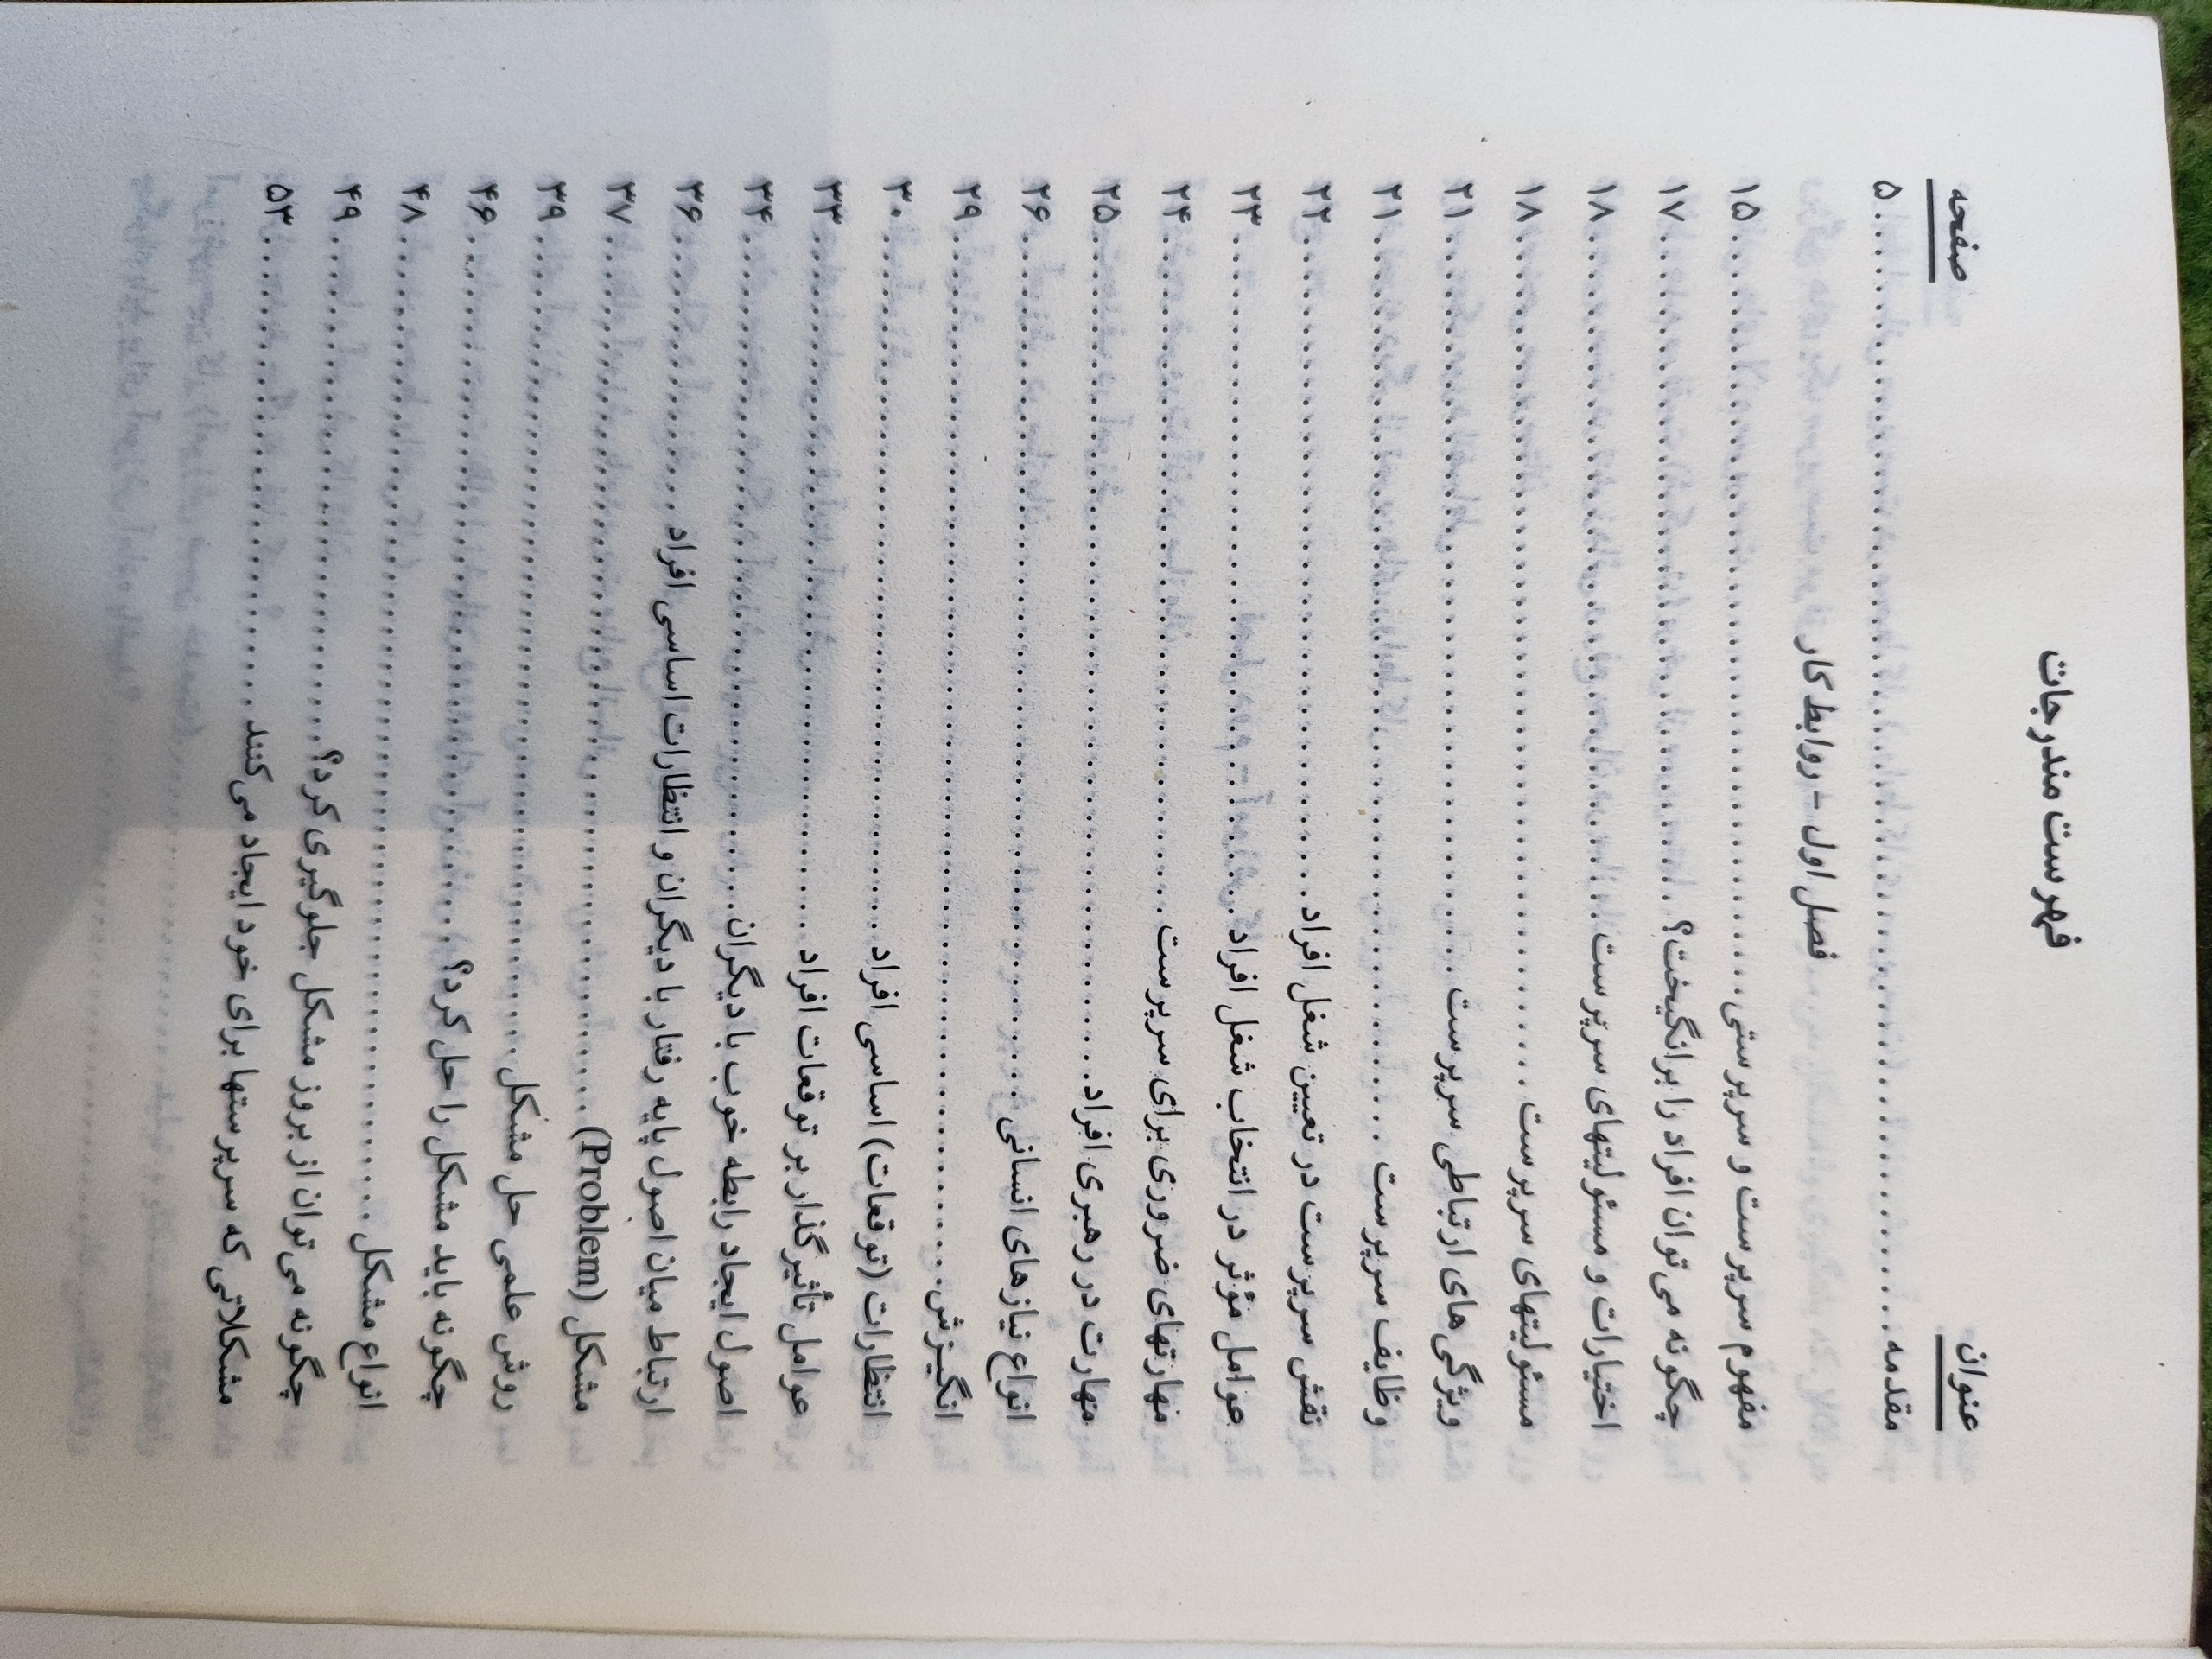 فهرست مندرجات
عنوان صفحه
مقدمه ..... ۵
فصل اول - روابط کار
مفهوم سرپرست و سرپرستی ..... ۱۵
چگونه می‌توان افراد را برانگیخت؟ ..... ۱۷
اختیارات و مسئولیتهای سرپرست ..... ۱۸
مسئولیتهای سرپرست ..... ۱۸
ویژگی‌های ارتباطی سرپرست ..... ۲۱
وظایف سرپرست ..... ۲۱
نقش سرپرست در تعیین شغل افراد ..... ۲۲
عوامل مؤثر در انتخاب شغل افراد ..... ۲۳
مهارتهای ضروری برای سرپرست ..... ۲۴
مهارت در رهبری افراد ..... ۲۵
انواع نیازهای انسانی ..... ۲۶
انگیزش ..... ۲۹
انتظارات (توقعات) اساسی افراد ..... ۳۰
عوامل تأثیرگذار بر توقعات افراد ..... ۳۳
اصول ایجاد رابطه خوب با دیگران ..... ۳۴
ارتباط میان اصول پایه رفتار با دیگران و انتظارات اساسی افراد ..... ۳۶
مشکل (Problem) ..... ۳۷
روش علمی حل مشکل ..... ۳۹
چگونه باید مشکل را حل کرد؟ ..... ۴۶
انواع مشکل ..... ۴۸
چگونه می‌توان از بروز مشکل جلوگیری کرد؟ ..... ۴۹
مشکلاتی که سرپرستها برای خود ایجاد می‌کنند ..... ۵۳